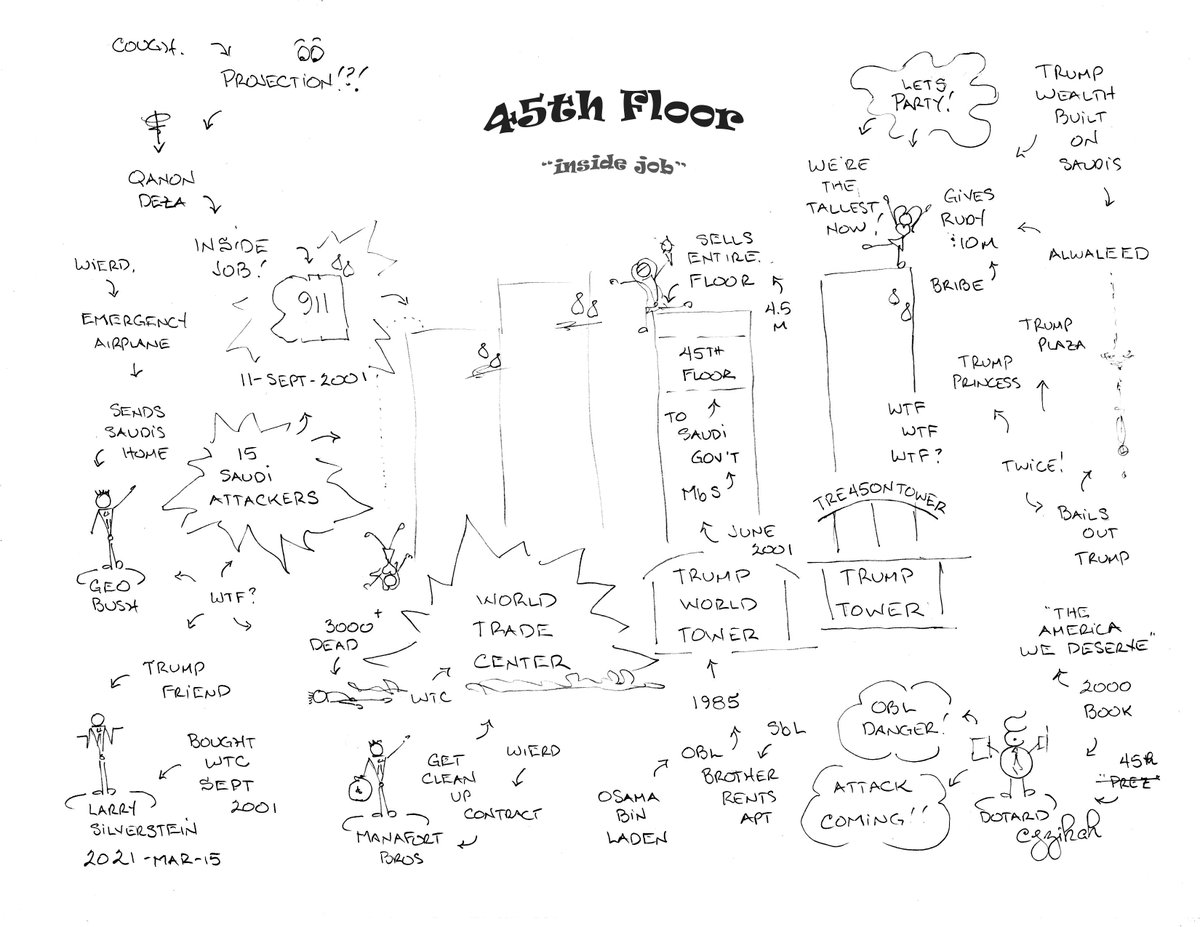 45th Floor
"inside job"
COUGH.
PROJECTION!?!
QANON
DEZA
INSIDE
JOB!
911
11-SEPT-2001
WIERD.
EMERGENCY
AIRPLANE
SENDS
SAUDIS
HOME
GEO
BUSH
15
SAUDI
ATTACKERS
WTF?
TRUMP
FRIEND
BOUGHT
WTC
SEPT
2001
LARRY
SILVERSTEIN
2021-MAR-15
3000+
DEAD
WTC
WORLD
TRADE
CENTER
GET
CLEAN
UP
CONTRACT
WIERD
MANAFORT
BROS
SELLS
ENTIRE
FLOOR
4.5
M
45TH
FLOOR
TO
SAUDI
GOV'T
MbS
JUNE
2001
TRUMP
WORLD
TOWER
1985
OBL
SbL
BROTHER
RENTS
APT
OSAMA
BIN
LADEN
LETS
PARTY!
WE'RE
THE
TALLEST
NOW!
GIVES
RUDY
$10M
BRIBE
TRUMP
WEALTH
BUILT
ON
SAUDIS
ALWALEED
TRUMP
PLAZA
TRUMP
PRINCESS
TWICE!
BAILS
OUT
TRUMP
WTF
WTF
WTF?
TRE45ONTOWER
TRUMP
TOWER
"THE
AMERICA
WE DESERVE"
2000
BOOK
OBL
DANGER!
ATTACK
COMING!!
DOTARD
45th
"PREZ"